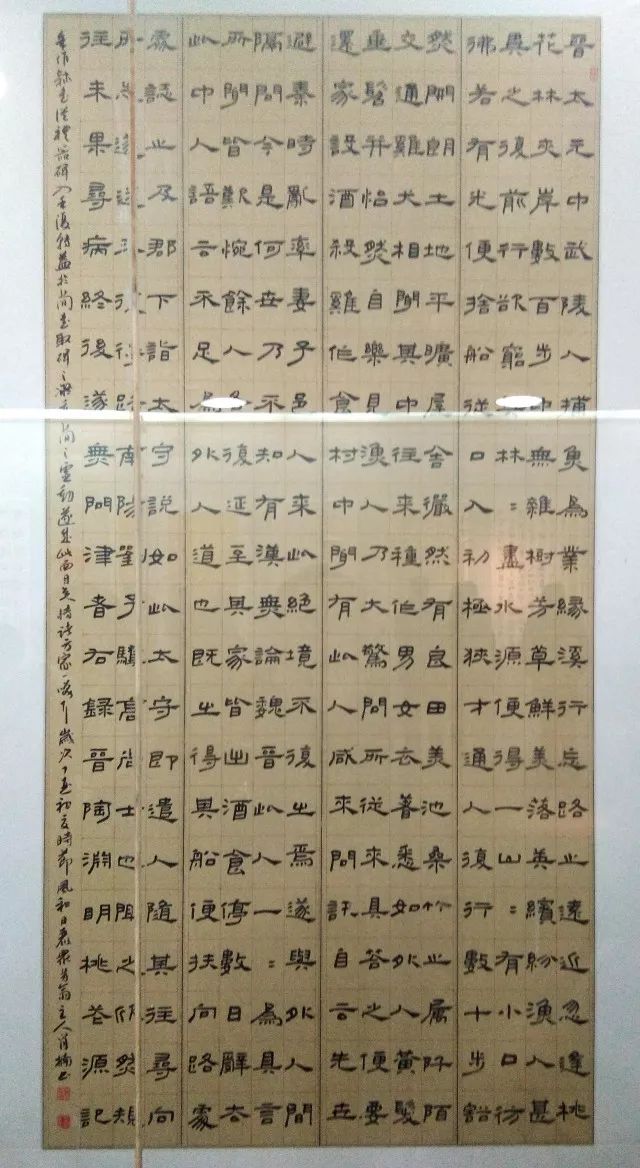 晋太元中武陵人捕魚為業緣溪行忘路之遠近忽逢桃
花林夾岸數百步中無雜樹芳草鮮美落英繽紛漁人甚
異之復前行欲窮其林〻盡水源便得一山〻有小口彷
彿若有光便捨船從口入初極狹才通人復行數十步豁
然開朗土地平曠屋舍儼然有良田美池桑竹之屬阡陌
交通雞犬相聞其中往來種作男女衣著悉如外人黃髮
垂髫并怡然自樂見漁人乃大驚問所從來具答之便要
還家設酒殺雞作食村中聞有此人咸來問訊自云先世
避秦時亂率妻子邑人來此絕境不復出焉遂與外人間
隔問今是何世乃不知有漢無論魏晉此人一〻為具言
所聞皆歎惋餘人各復延至其家皆出酒食停數日辭去
此中人語云不足為外人道也既出得其船便扶向路處
處誌之及郡下詣太守說如此太守即遣人隨其往尋向
所誌遂迷不復得路南陽劉子驥高尚士也聞之欣然規
往未果尋病終後遂無問津者右錄晉陶淵明桃花源記
吾作隸書從禮器碑入手後轉益於簡書取碑之簡之靈動遂生此面目矣諸方家一哂歲次丁酉初夏時節風和日麗主人書